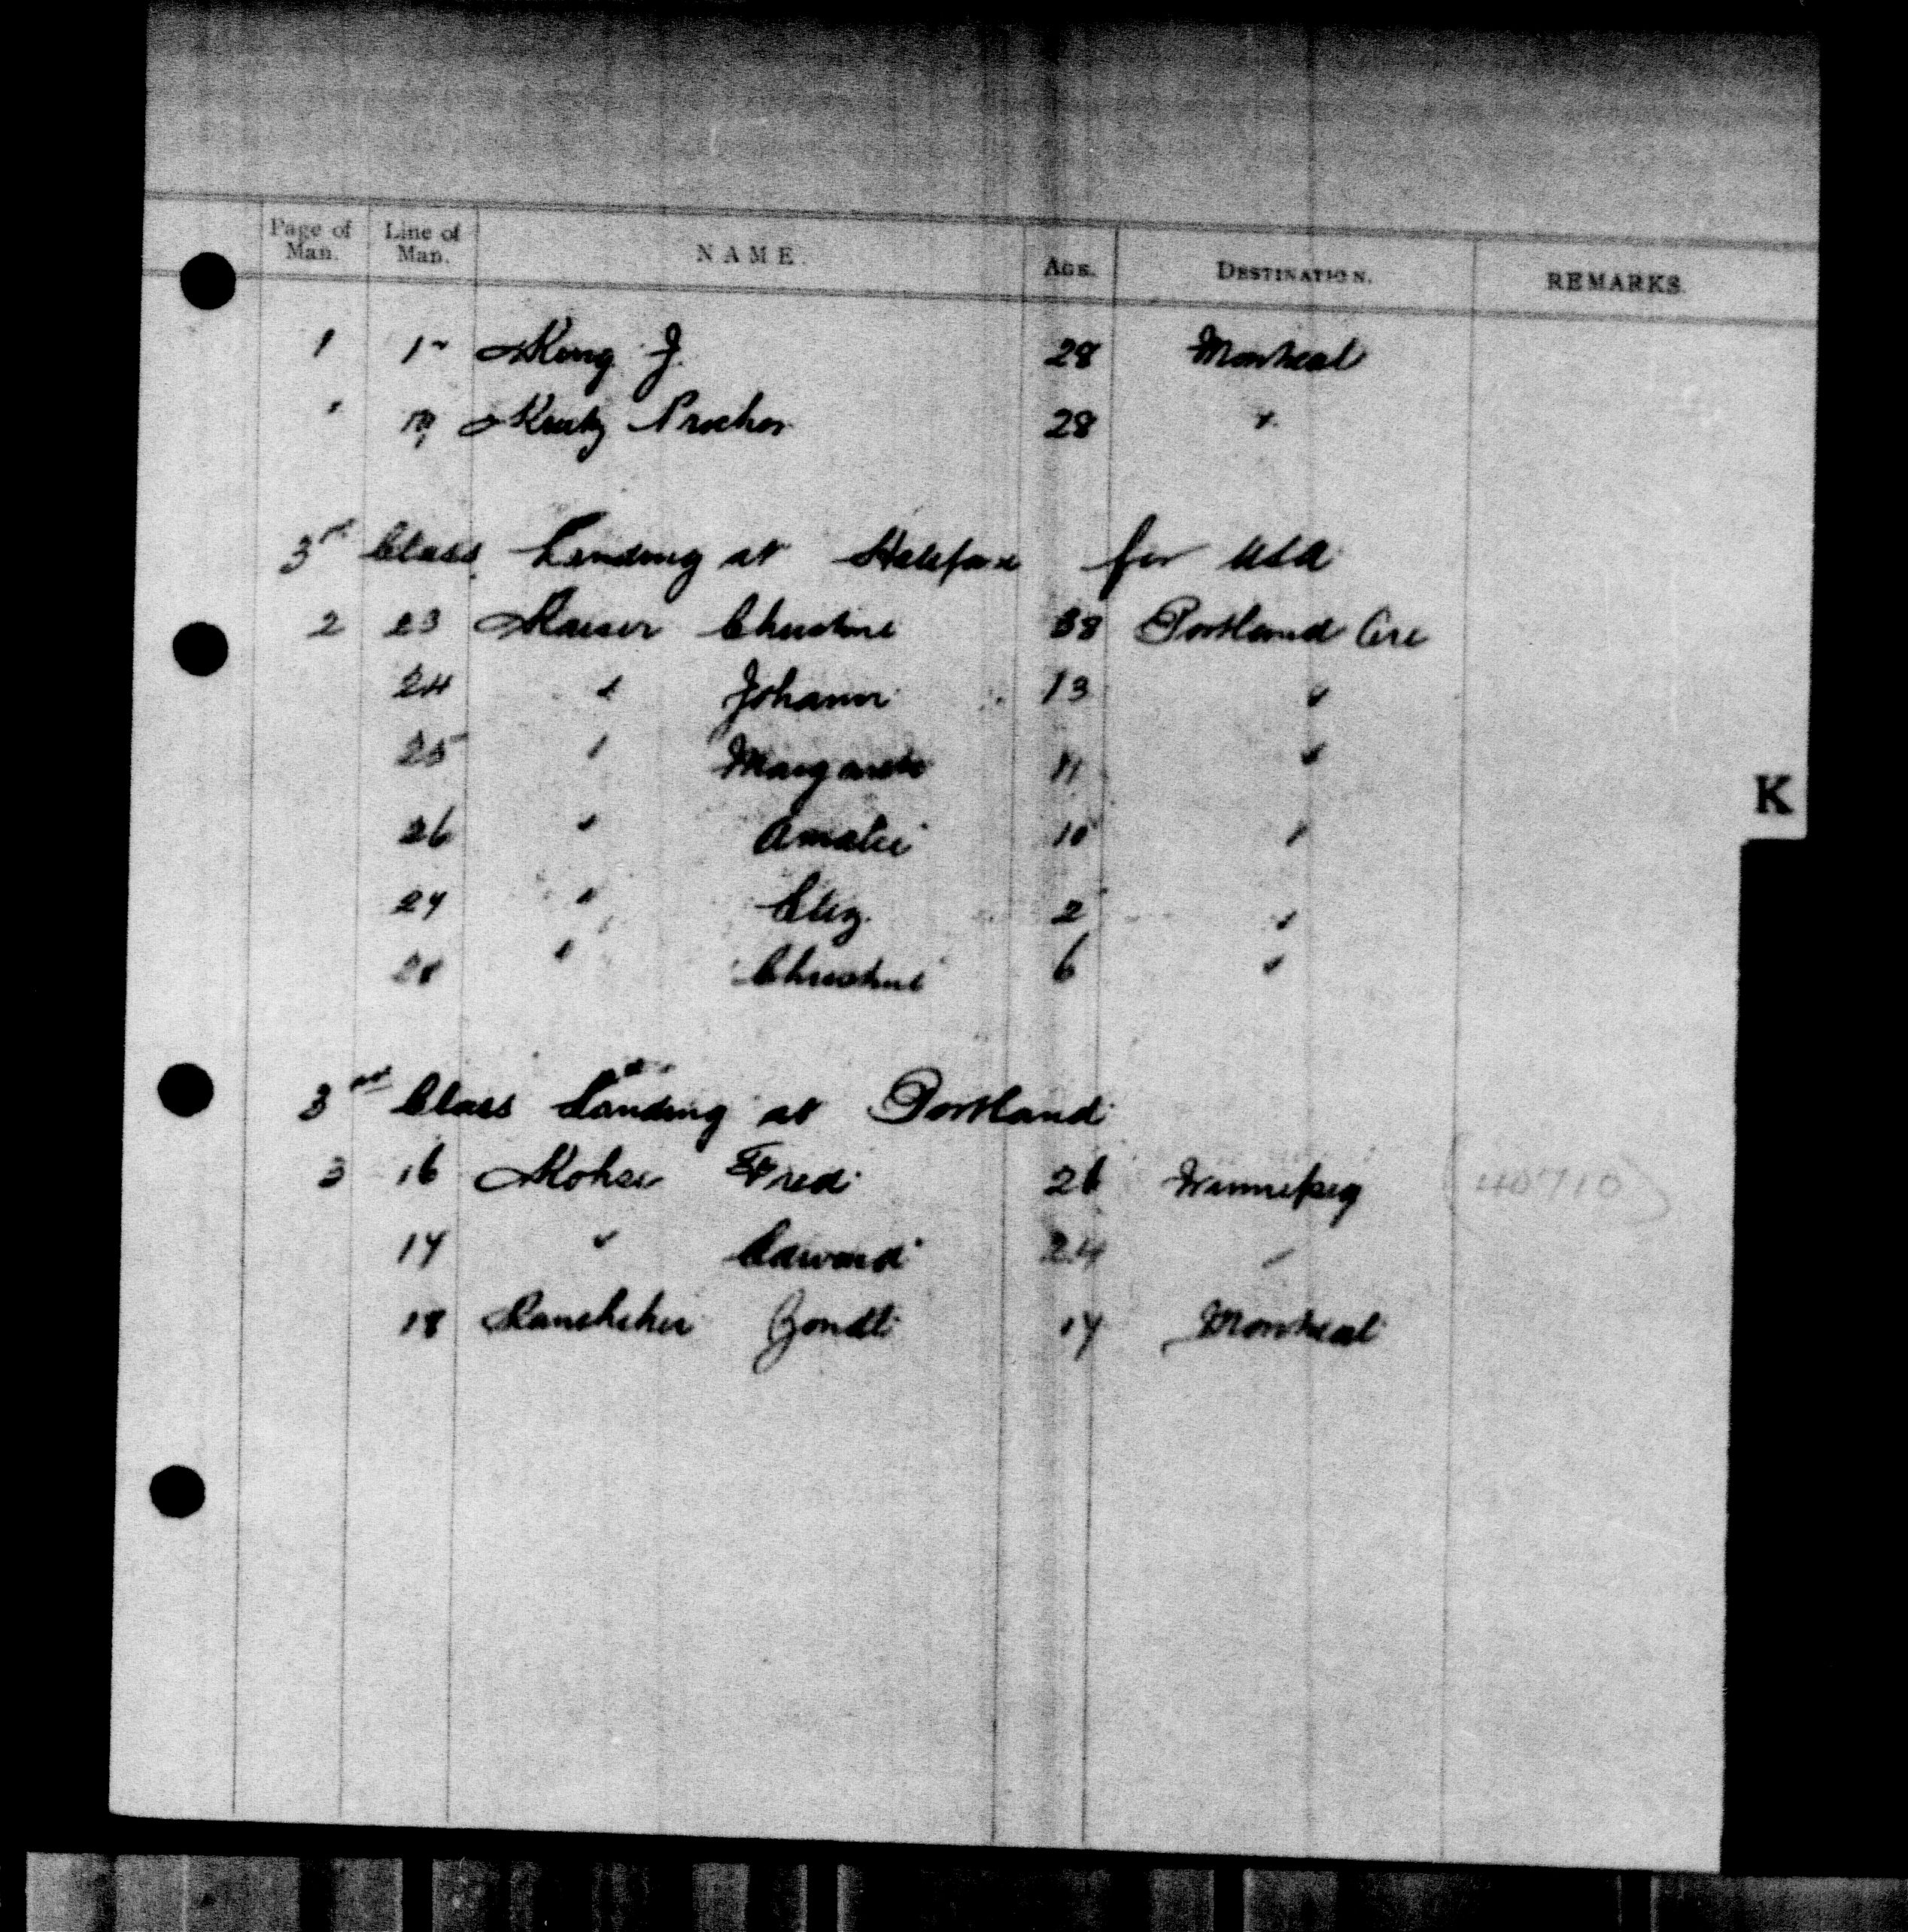 Page of Man. Line of Man. NAME. AGE. DESTINATION. REMARKS.
1 King J. 28 Montreal
" 28 "
3rd Class Landing at Halifax for USA
2 23 Kaiser Christine 38 Portland Ore
24 " Johann 13 "
25 " Margarete 11 "
K
26 " Amalie 10 "
27 " Eliz. 2 "
28 " Christine 6 "
3rd Class Landing at Portland
3 16 Fred 26 Winnipeg (40710)
17 " Edward 24 "
18 17 Montreal